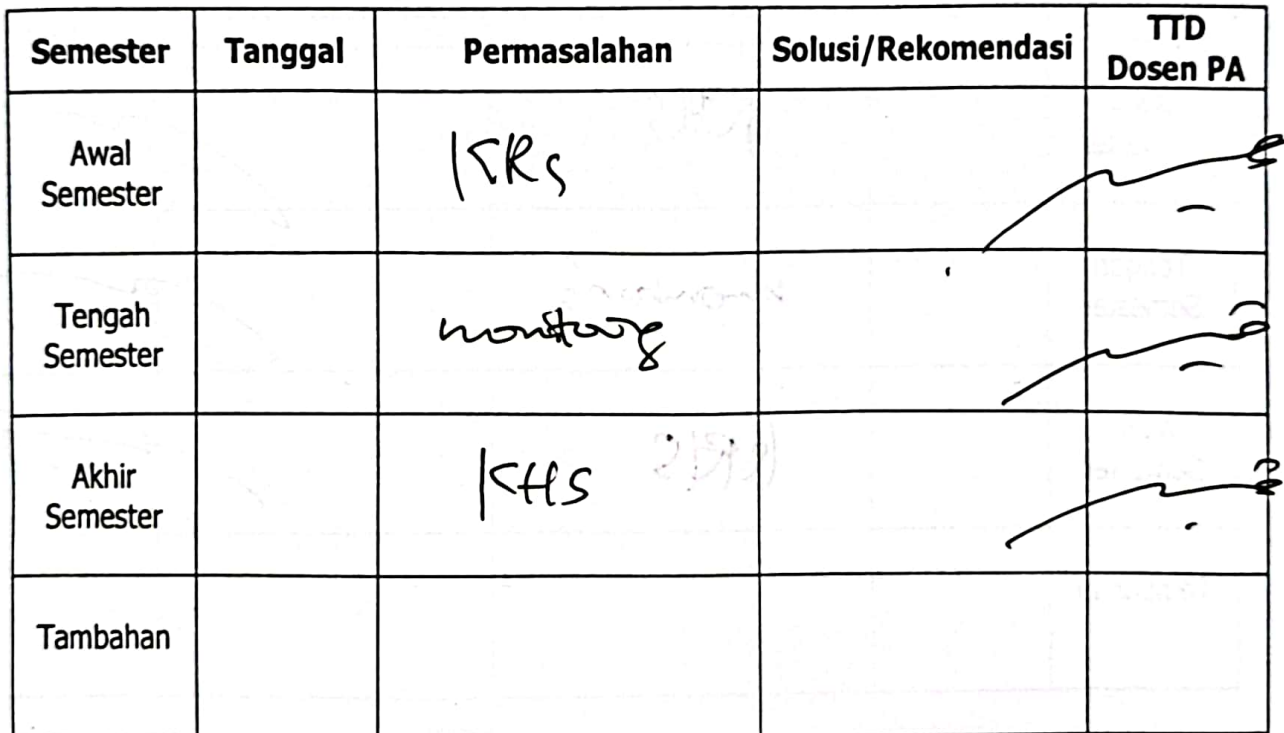 Semester Tanggal Permasalahan Solusi/Rekomendasi TTD Dosen PA
Awal Semester KRS
Tengah Semester monitoring
Akhir Semester KHS
Tambahan